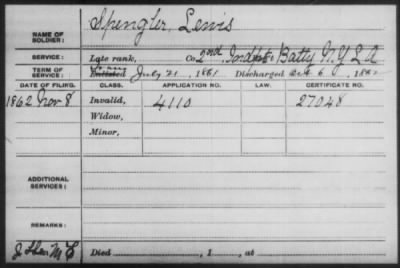 Spengler, Lewis
NAME OF SOLDIER:
SERVICE: Late rank, Co. 2nd Indpt Batty N.Y. L A
TERM OF SERVICE: Enlisted July 21, 1861 Discharged Oct 6, 1862
DATE OF FILING. CLASS. APPLICATION NO. LAW. CERTIFICATE NO.
1862 Nov 8 Invalid, 4110 27048
Widow,
Minor,
ADDITIONAL SERVICES:
REMARKS:
Died , 1 , at